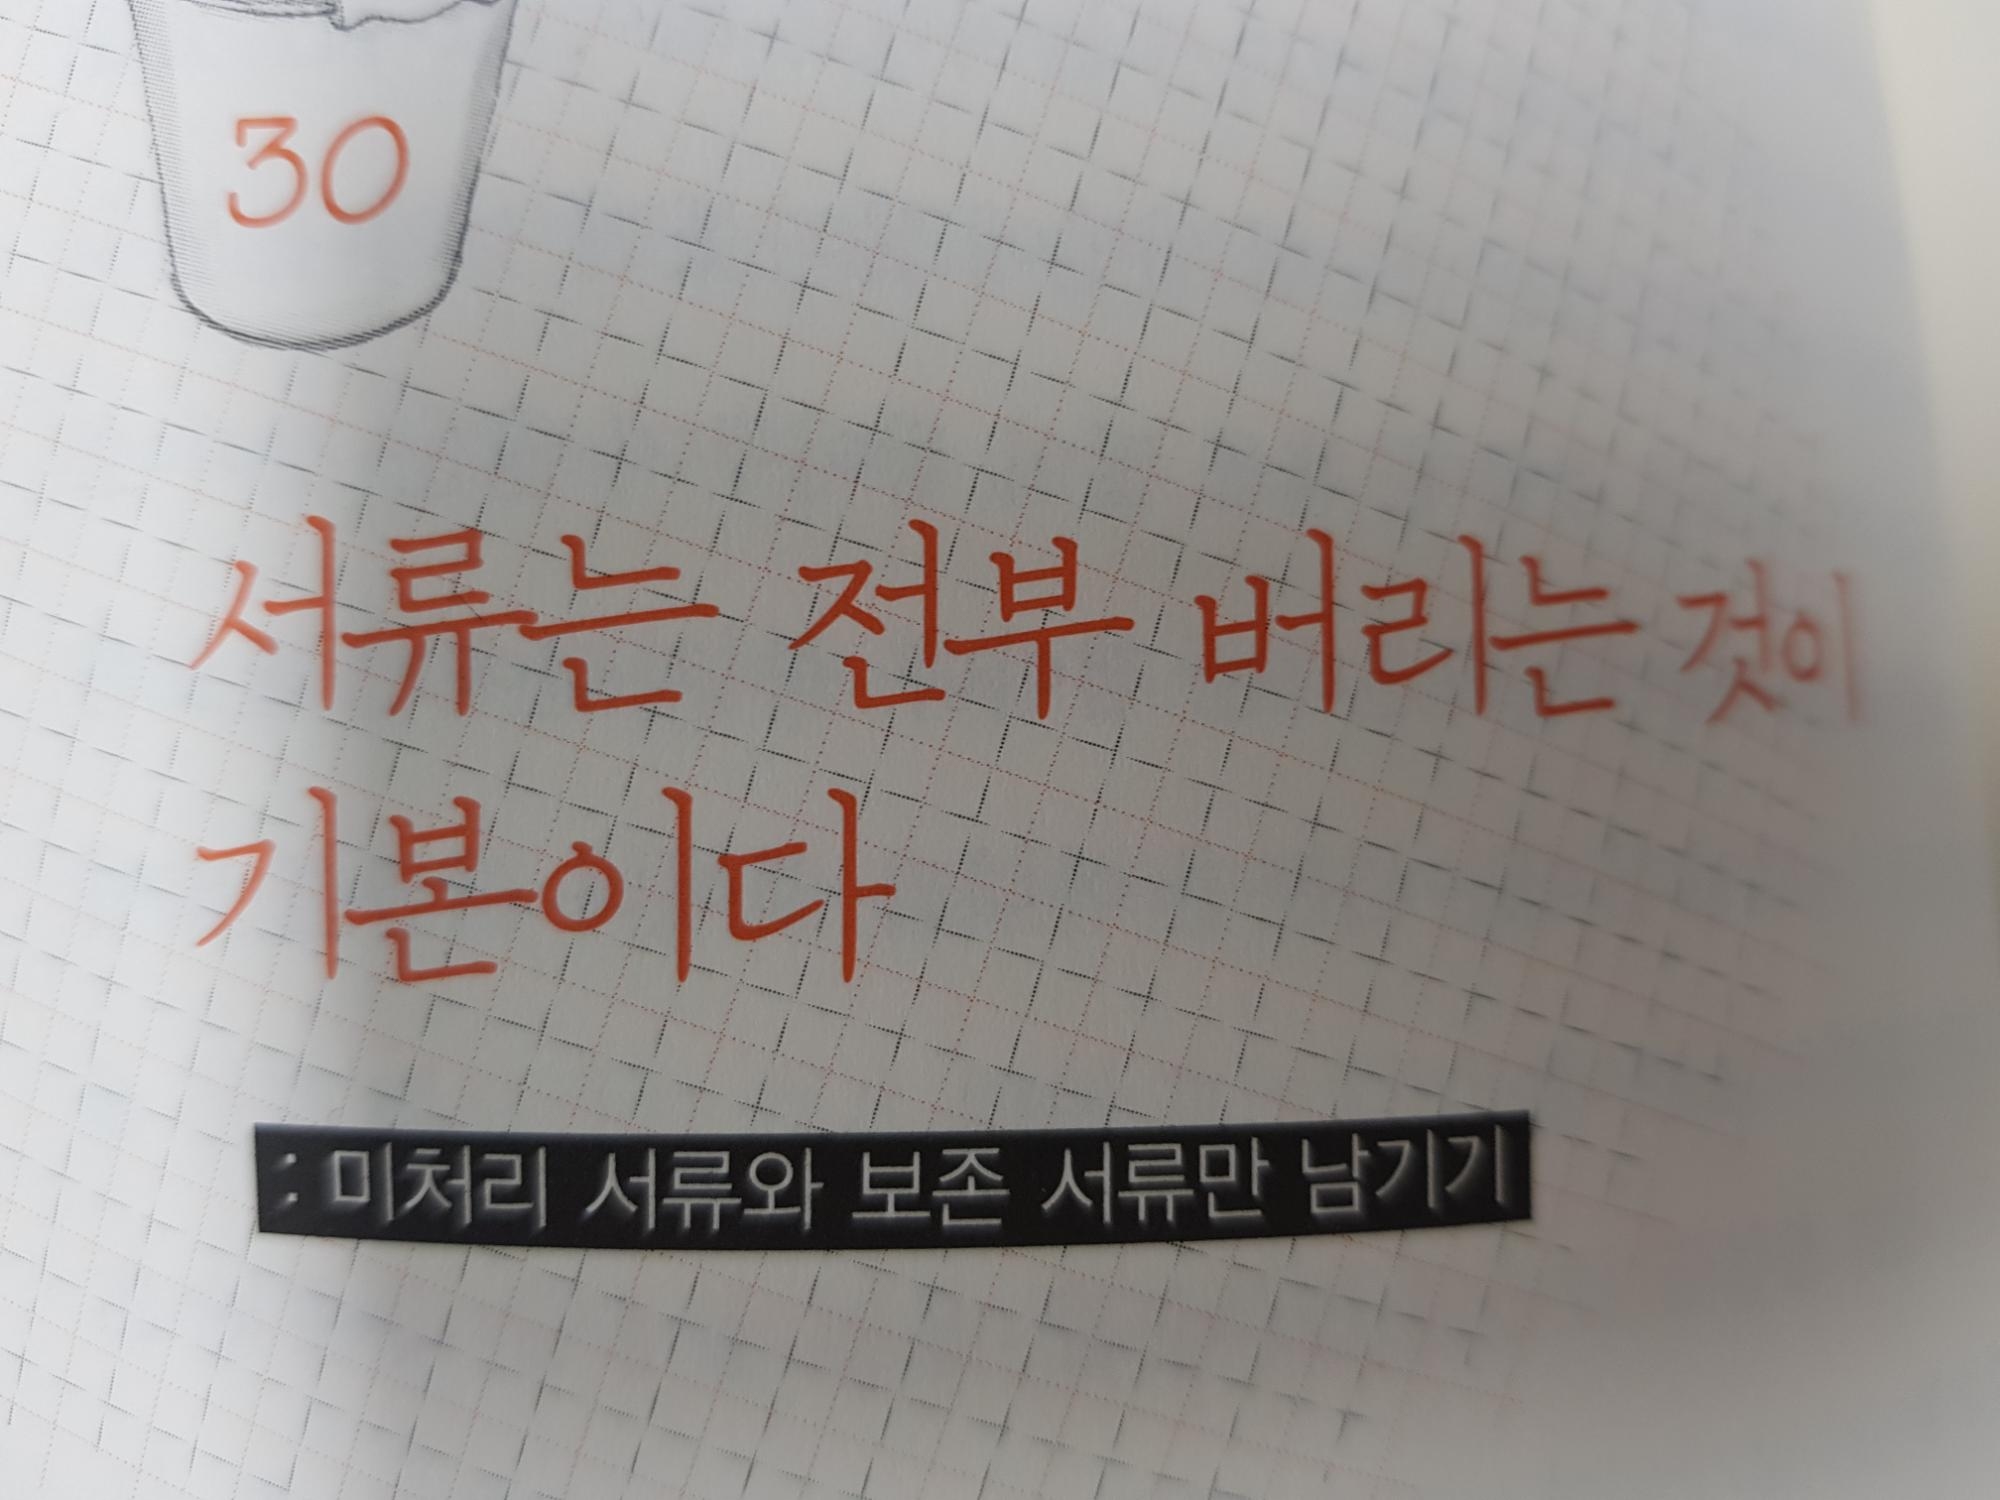 30
서류는 전부 버리는 것이
기본이다
: 미처리 서류와 보존 서류만 남기기